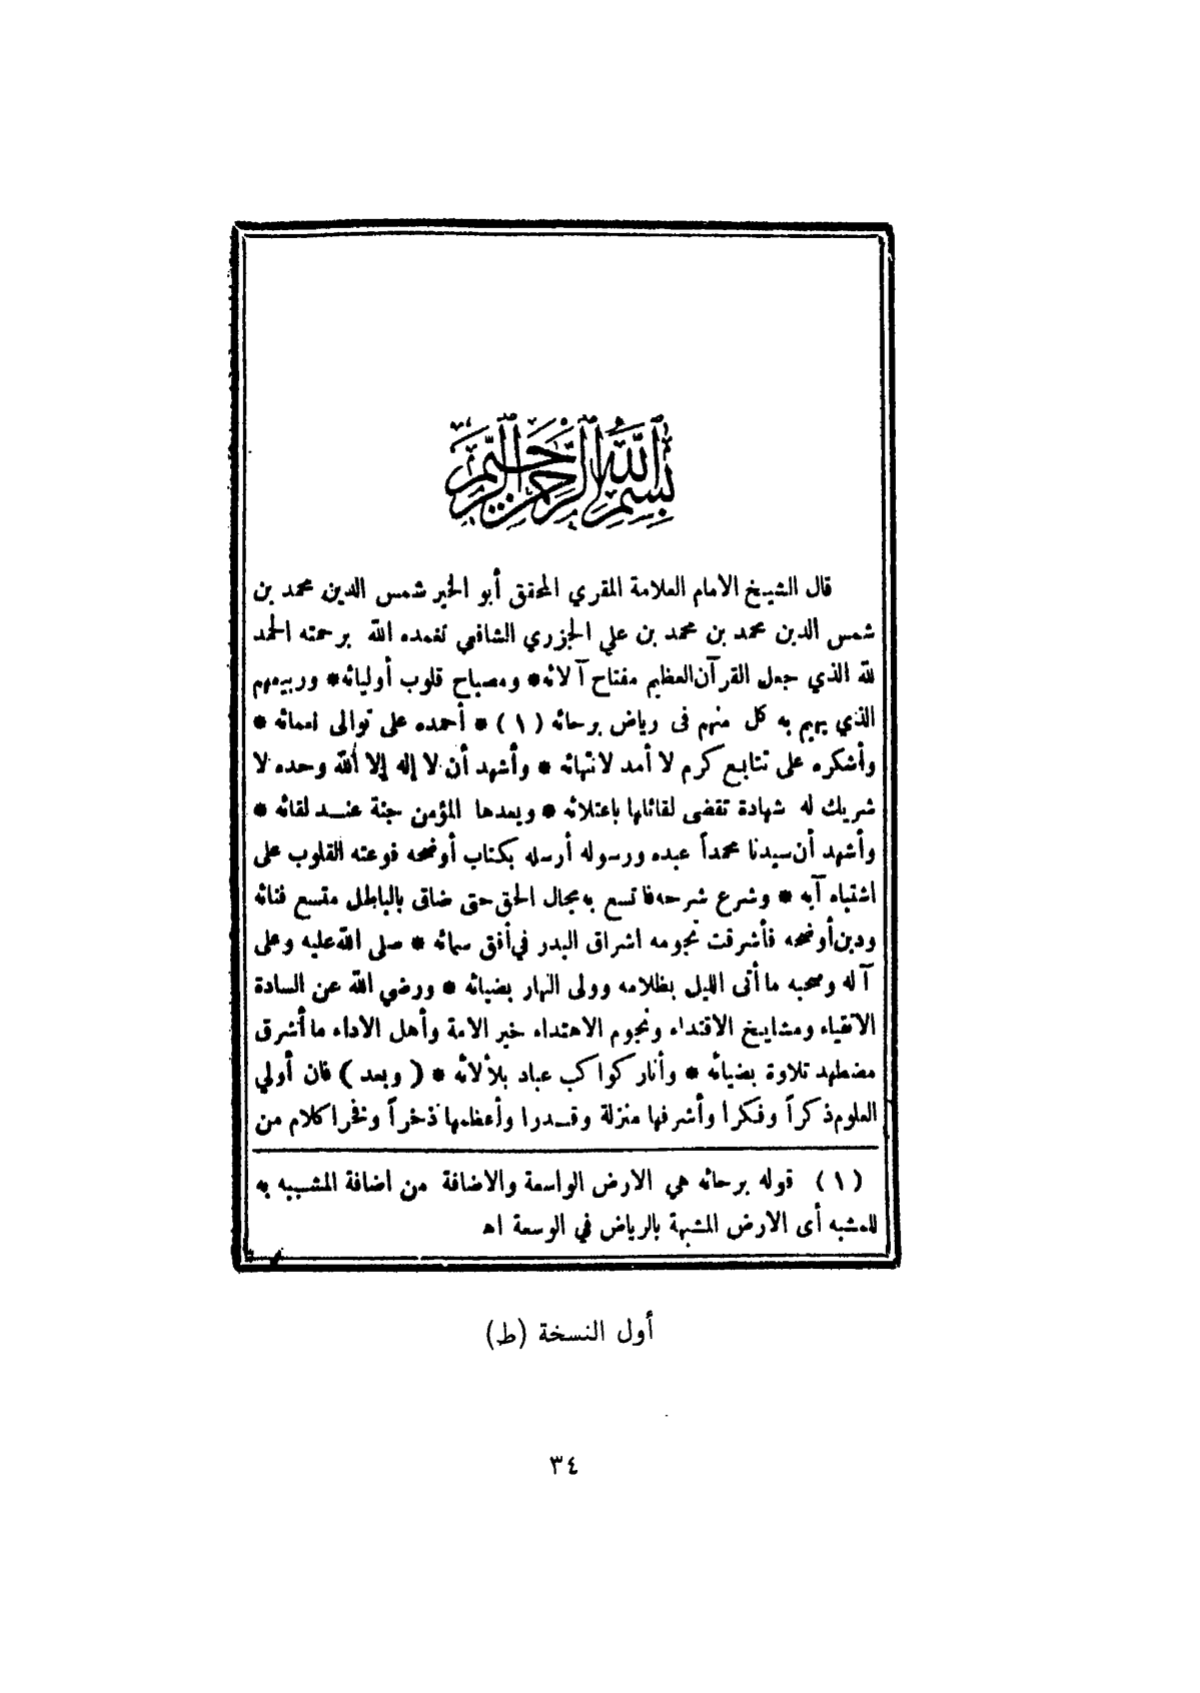 بسم الله الرحمن الرحيم
قال الشيخ الامام العلامة المقري المحقق أبو الخير شمس الدين محمد بن
شمس الدين محمد بن محمد بن علي الجزري الشافعي تغمده الله برحمته الحمد
لله الذي جعل القرآن العظيم مفتاح آلائه * ومصباح قلوب أوليائه * وربيعهم
الذي يهيم به كل منهم فى رياض برحائه (١) * أحمده على توالى نعمائه *
وأشكره على تتابع كرم لا أمد لانتهائه * وأشهد أن لا إله إلا الله وحده لا
شريك له شهادة تقضى لقائلها باعتلائه * ويعدها المؤمن جنة عند لقائه *
وأشهد أن سيدنا محمداً عبده ورسوله أرسله بكتاب أوضحه فوعته القلوب على
اشتباه آيه * وشرع شرحه فاتسع به مجال الحق حتى ضاق بالباطل متسع فنائه
ودين أوضحه فأشرقت نجومه اشراق البدر في أفق سمائه * صلى الله عليه وعلى
آله وصحبه ما أتى الليل بظلامه وولى النهار بضيائه * ورضي الله عن السادة
الاتقياء ومشايخ الاقتداء ونجوم الاهتداء خير الامة وأهل الاداء ما أشرق
مضطهد تلاوة بضيائه * وأنار كواكب عباد بلألائه * (وبعد) فان أولي
العلوم ذكراً وفكرا وأشرفها منزلة وقدرا وأعظمها ذخراً وفخرا كلام من
(١) قوله برحائه هي الارض الواسعة والاضافة من اضافة المشبه به
للمشبه أى الارض المشبهة بالرياض في الوسعة اه
أول النسخة (ط)
٣٤